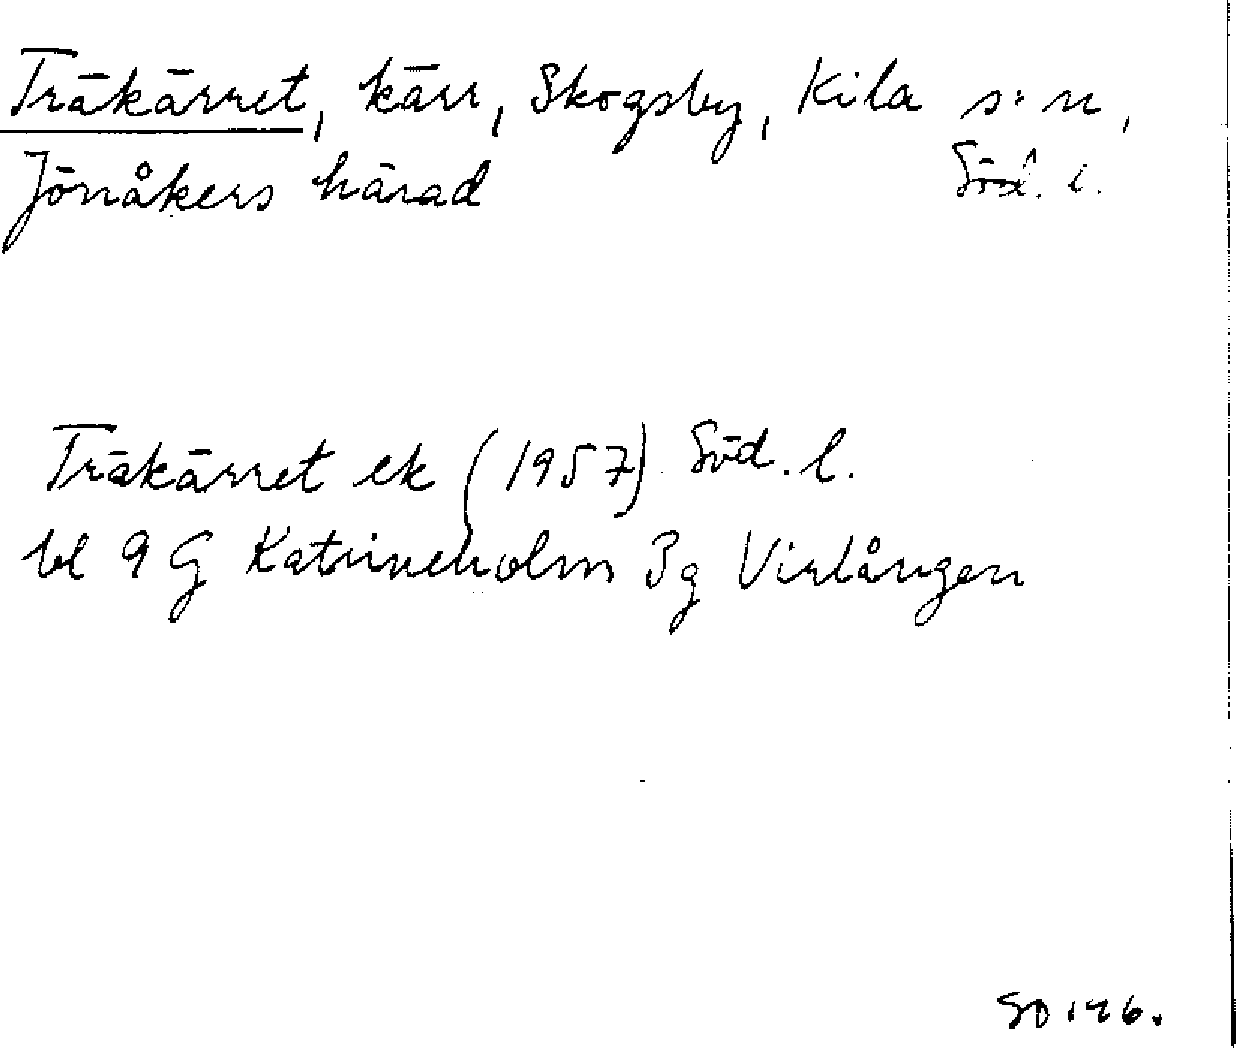 Träkärret, kärr, Skogsby, Kila s:n,
Jönåkers härad Söd. l.
Träkärret ek (1957) Söd. l.
bl 9 G Katrineholm 3g Virlången
SO 146.